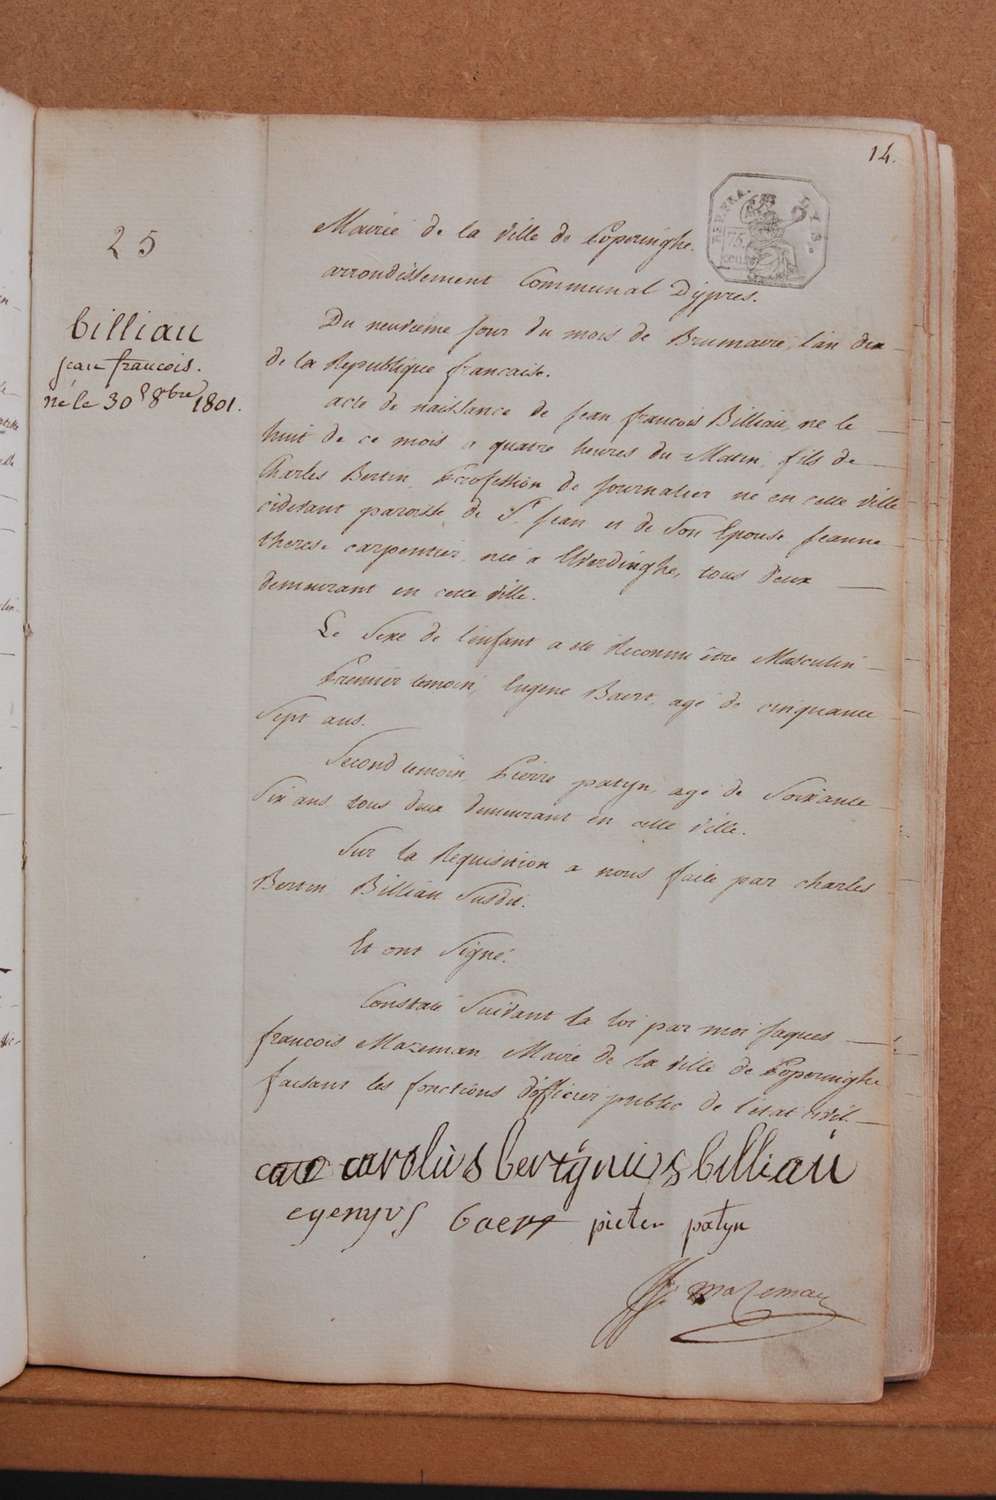 14.
REP. FRA.
75
CENT
25
billiau
jean francois.
né le 30 8bre 1801.
Mairie de la Ville de Poperinghe.
arrondissement Communal D'ypres.
Du neuvieme Jour du mois de Brumaire, l'an dix
de la Republique francaise.
acte de naissance de Jean francois Billiau, né le
huit de ce mois a quatre heures du Matin, fils de
Charles Bertin, Profession de Journalier né en cette ville
cidevant paroisse de St. Jean et de Son Epouse Jeanne
therese carpentier, née a Elverdinghe, tous deux
demeurant en cette ville.
Le Sexe de l'enfant a été Reconnu être Masculin
Premier temoin, Eugene Baert, agé de cinquante
Sept ans.
Second temoin Pierre patyn, agé de Soixante
Six ans, tous deux demeurant en cette ville.
Sur la Requisition a nous faite par charles
Bertin Billiau Susdit.
Et ont Signé.
Constaté Suivant la loi par moi Jaques
francois Mazeman Maire de la ville de Poperinghe
faisant les fonctions d'officier public de l'état civil.
carolüs bertÿnüs billiaü
egenyvs baert pieter patyn
JF. Mazeman